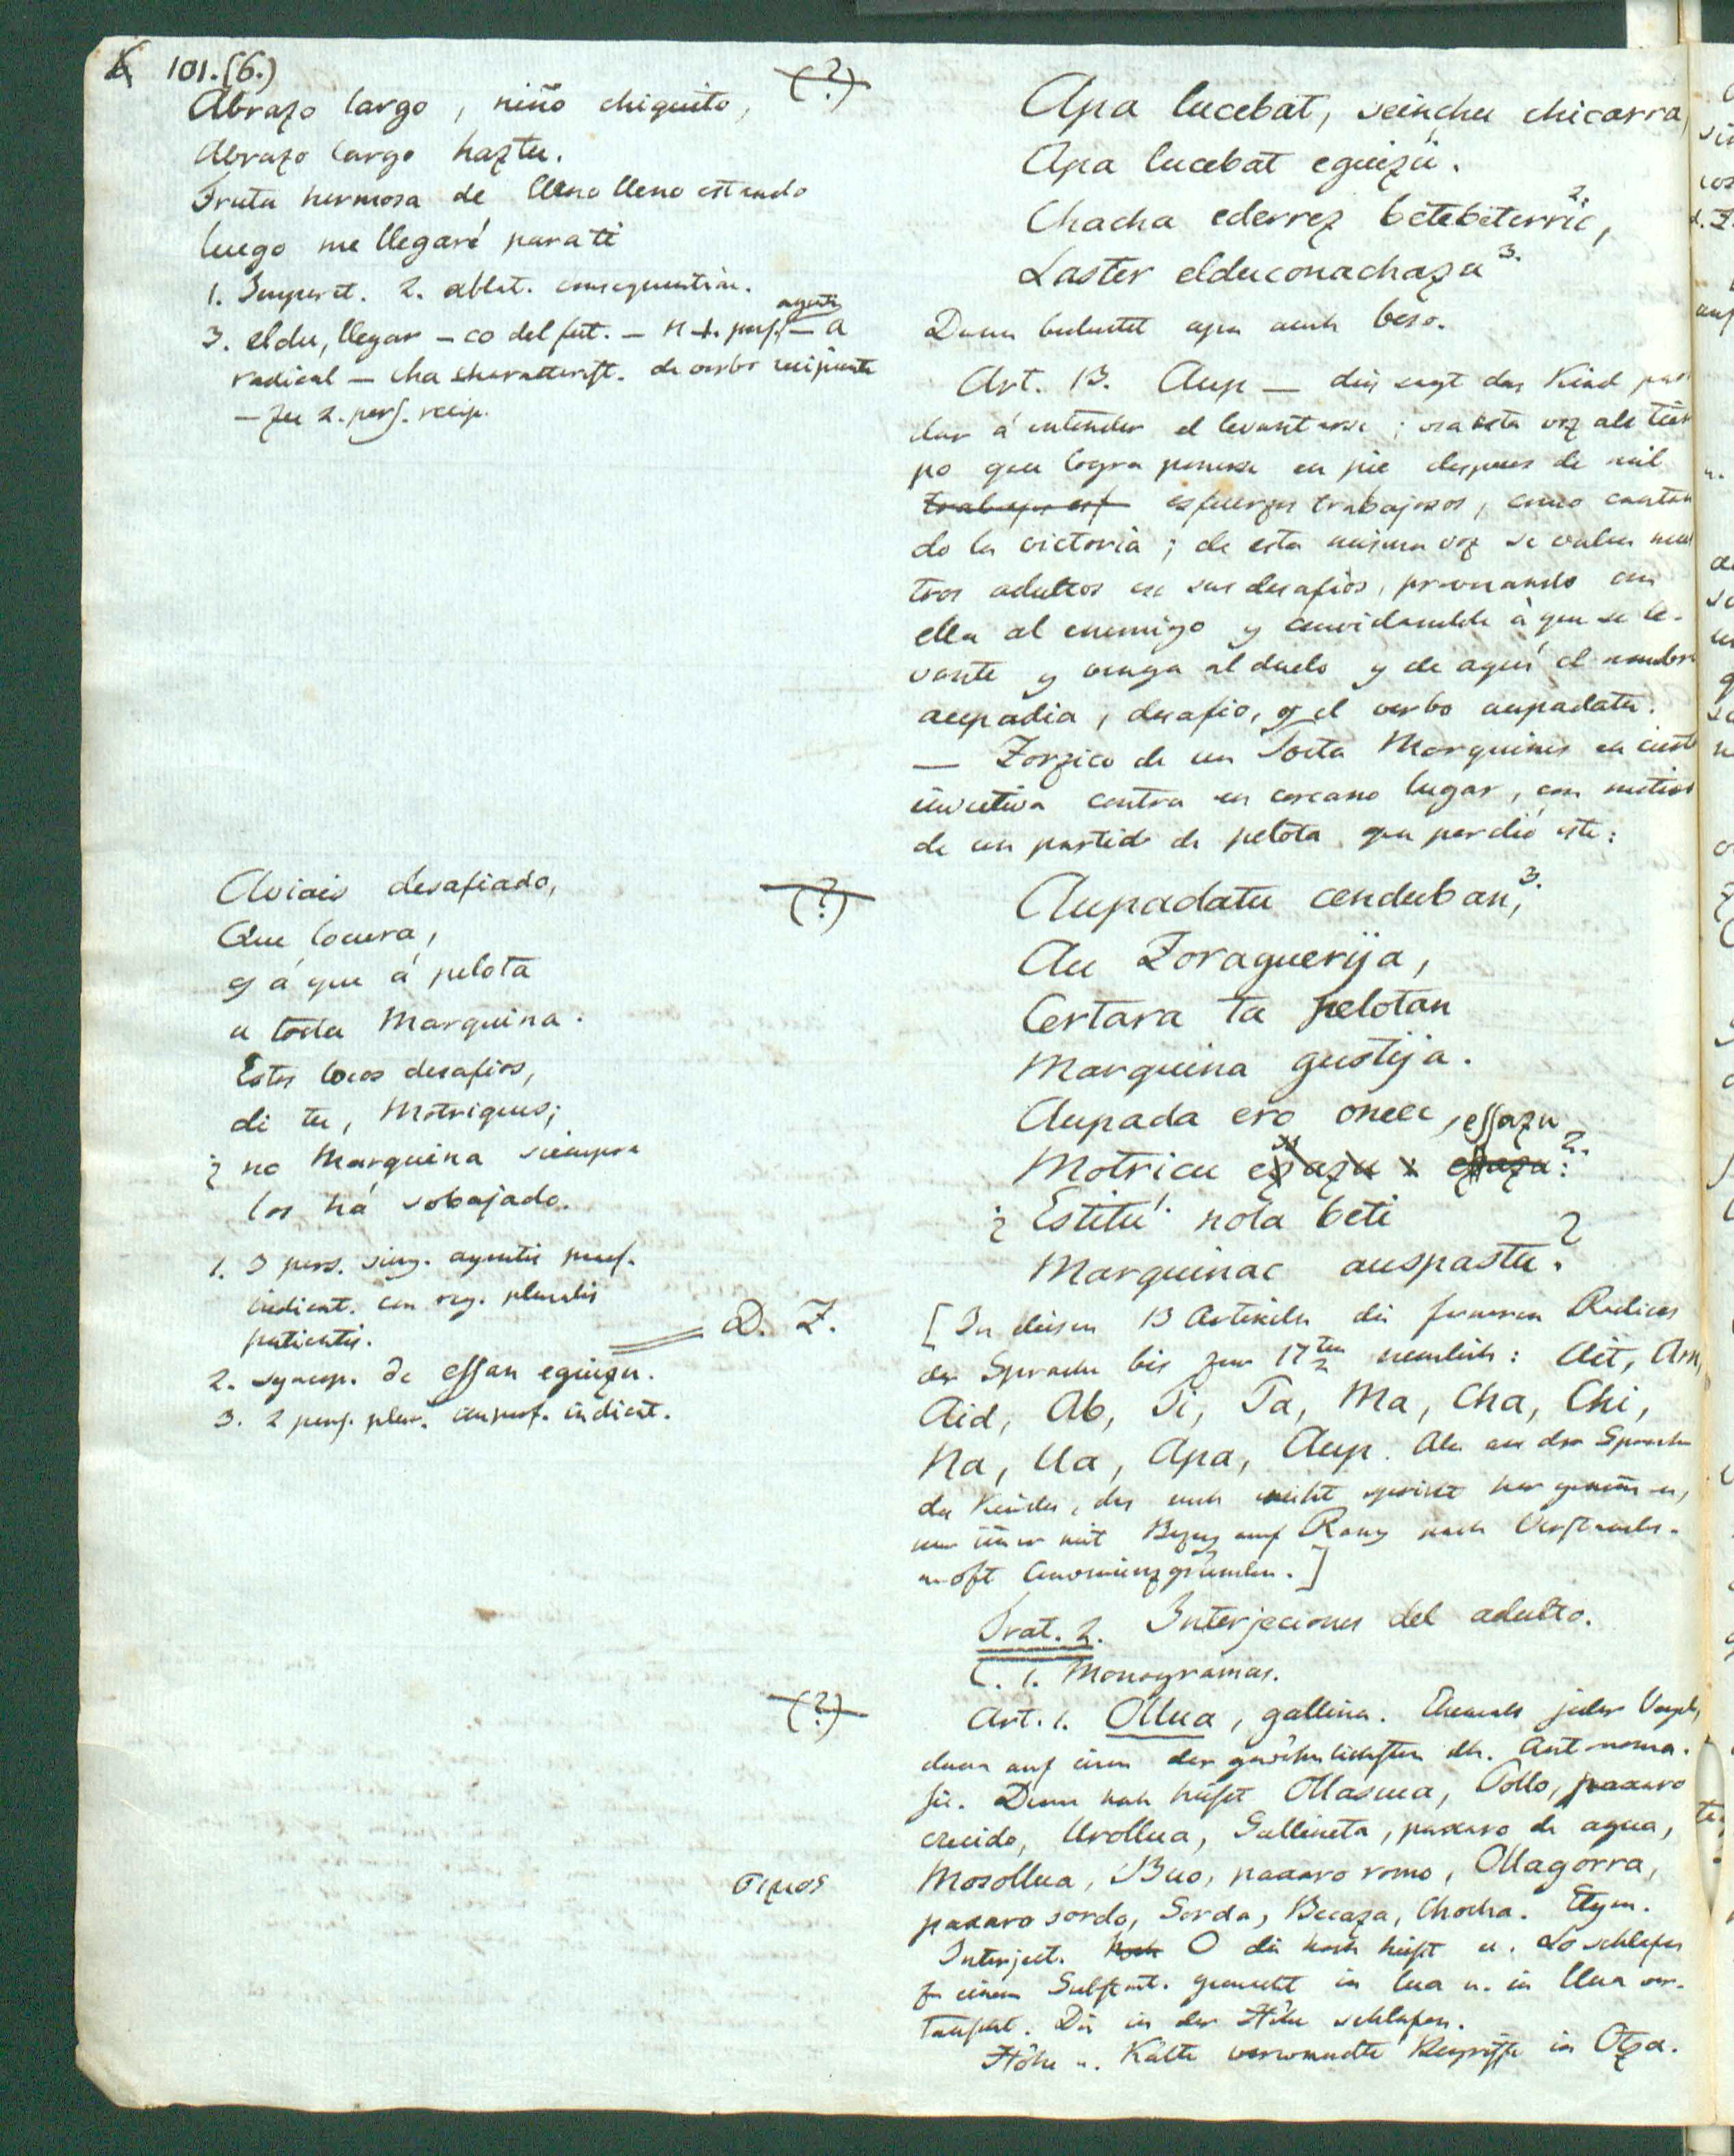 101.(6.)
Abrazo largo, niño chiquito,
Abrazo largo haztu.
Fruta hermosa de lleno lleno estando
luego me llegaré para ti
1. Imperat. 2. ablat. consequentiae.
3. eldu, llegar – co del fut. – n 1. pers. agentis – a
radical – cha characterist. de verbo recipiente
– zu 2. pers. recip.
(?)
Apa lucebat, seinchu chicarra,
Apa lucebat eguizu.
Chacha ederrez betebeterric, 2.
Laster elduconachazu 3.
Dann bedeutet apa auch beso.
Art. 13. Aup – dies sagt das Kind para
dar á entender el levantarse; usa esta voz al tiem
po que logra ponerse en pie despues de mil
esfuerzos trabajosos, como cantan
do la victoria; de esta misma voz se valen nues
tros adultos en sus desafios, provocando con
ella al enemigo y convidandole à que se le-
vante y venga al duelo y de aqui el nombre
aupadia, desafio, y el verbo aupadatu.
— Zorzico de un Poeta Marquines en cierta
invectiva contra un cercano lugar, con motivo
de un partido de pelota que perdió este:
Aviais desafiado,
Que locura,
y á que á pelota
a toda Marquina.
Estos locos desafios,
di tu, Motriques;
¿ no Marquina siempre
los há sobajado.
1. 3 pers. sing. agentis praes.
indicat. con reg. pluralis
patientis.
2. syncop. de essan eguizu.
3. 2 pers. plur. imperf. indicat.
(?)
Aupadatu cenduban, 3.
Au Zoraguerija,
Certara ta pelotan
Marquina gustija.
Aupada ero onec, essazu
Motricu 2.
¿ Estitu 1. nola beti
Marquinac auspastu?
D. Z.
[In diesen 13 Artikeln die ferneren Radices
der Sprache bis zur 17ten nemlich: Ait, Am,
Aid, Ab, Ti, Ta, Ma, Cha, Chi,
Na, Ua, Apa, Aup. Alle aus der Sprache
des Kindes, das noch nicht spricht hergenommen,
nur immer mit Bezug auf Rang nach
]
Trat. 2. Interjeciones del adulto.
C. 1. Monogramas.
(?)
Art. 1. Ollua, gallina. Ehemals jeder Vogel,
dann auf einen der gewöhnlichsten dh. Antonoma-
sie. Denn noch heisst Ollascua, Pollo, paxaro
crecido, Urollua, Gallineta, paxaro de agua,
Mosollua, Buo, paxaro romo, Ollagorra,
paxaro sordo, Sorda, Becaza, Chocha. Etym.
Interject. O die hoch heisst u. Lo schlafen
zu einem Substant. gemacht in lua u. in llua ver-
tauscht. Die in der Höhe schlafen.
Höhe u. Kälte verwandte Begriffe in Otza.